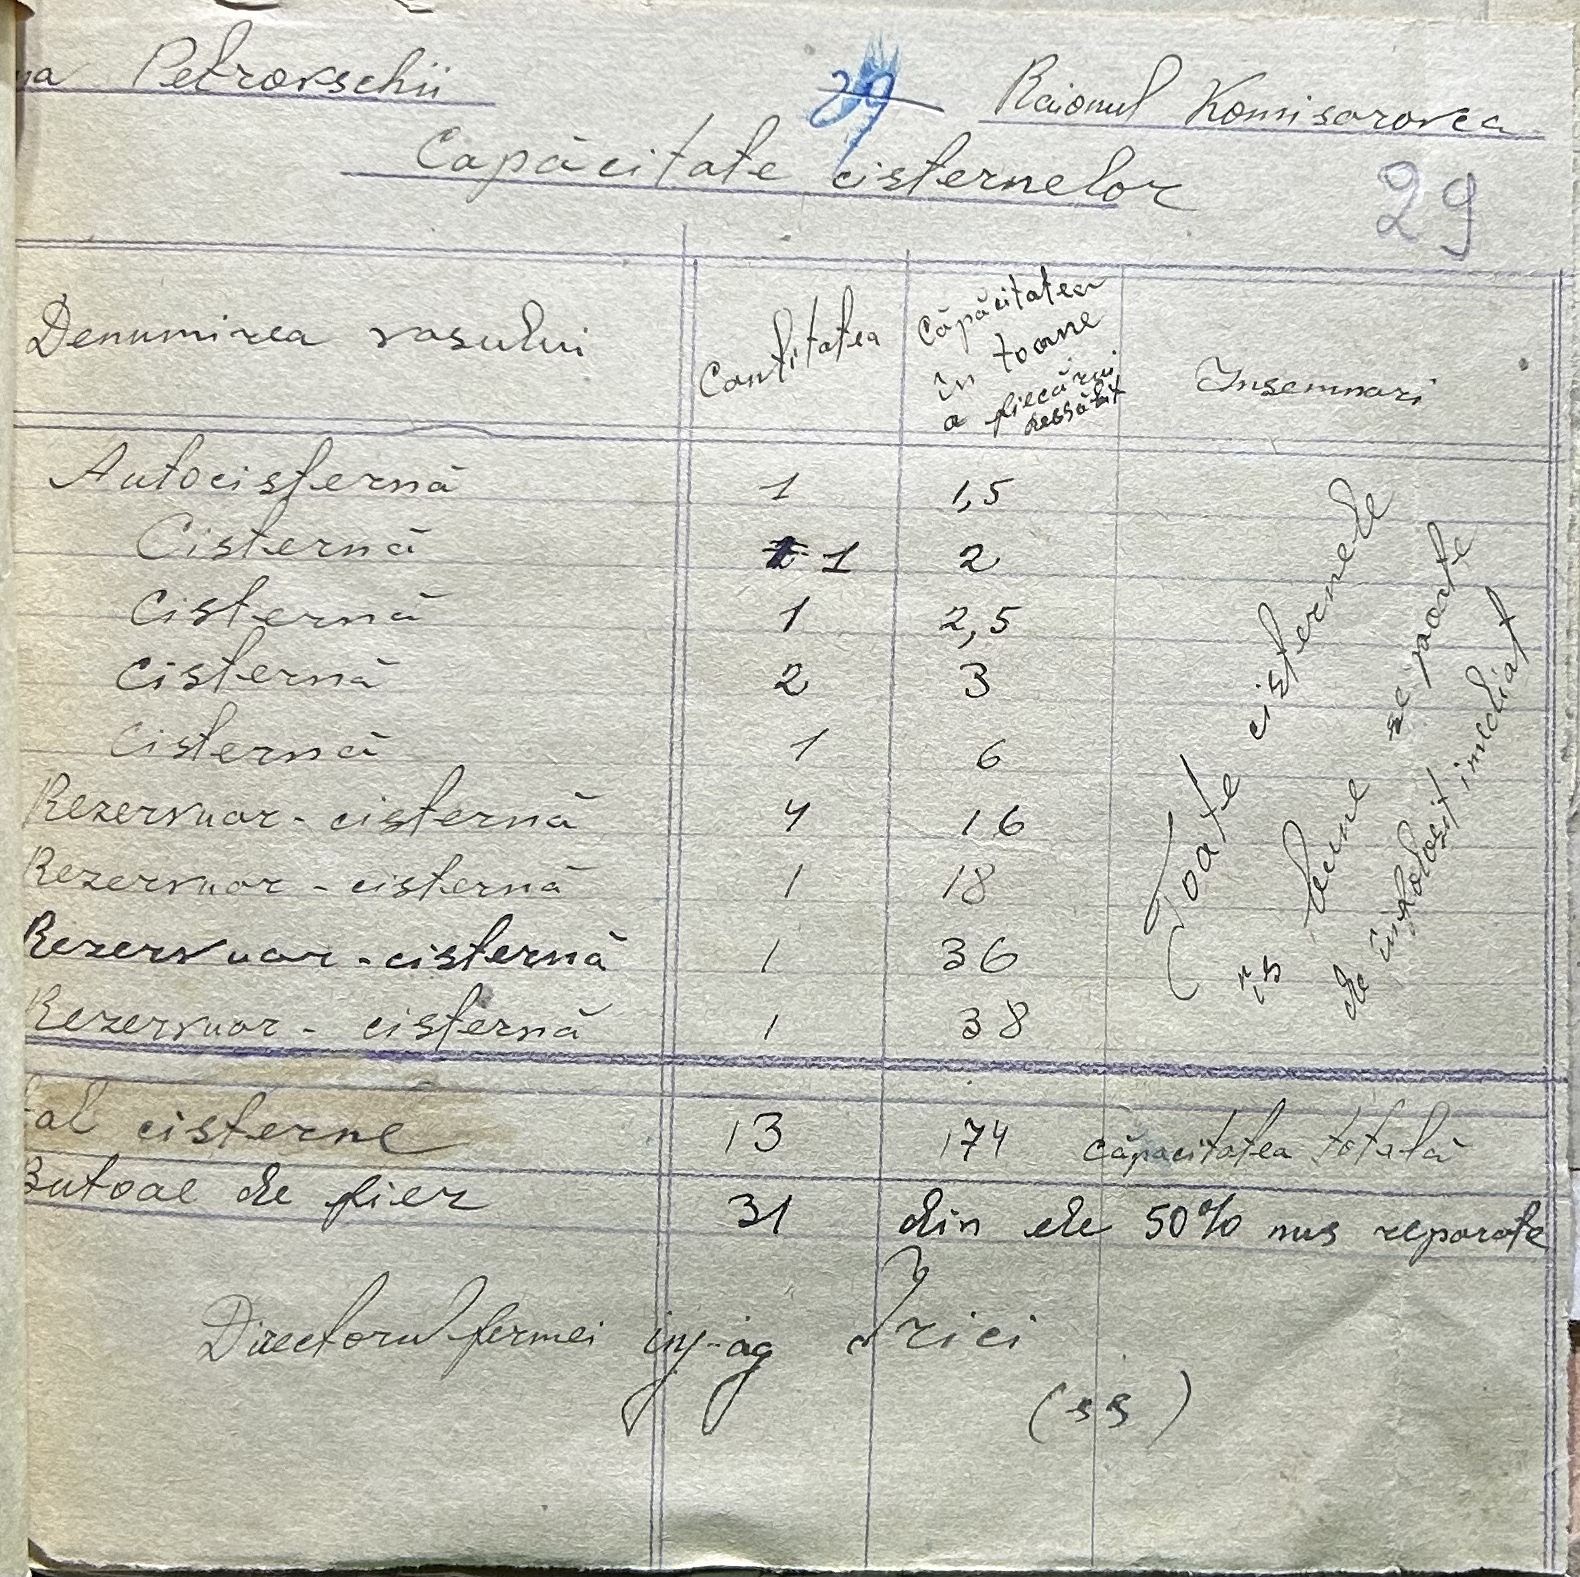 na Petrovschii
29
Raionul Komisarovca
Capăcitate cisternelor
29
Denumirea vasului
Cantitatea
Căpăcitatea
în toane
a fiecărui
Insemnari
Autocisternă 1 1,5
Cisternă 1 2
Cisternă 1 2,5
Cisternă 2 3
Cisternă 1 6
Rezervuar - cisternă 4 16
Rezervuar - cisternă 1 18
Rezervuar - cisternă 1 36
Rezervuar - cisternă 1 38
Toate cisternele
îs bune se poate
de înfolosit imediat
tal cisterne 13 174 căpacitatea totală
Butoae de fier 31 din ele 50% nus reparate
Directorul fermei inj-ag
(ss)